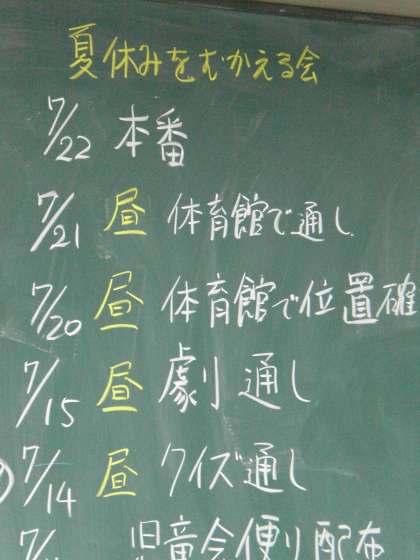 夏休みをむかえる会
7/22 本番
7/21 昼 体育館で通し
7/20 昼 体育館で位置確
7/15 昼 劇通し
7/14 昼 クイズ通し
児童会便り配布